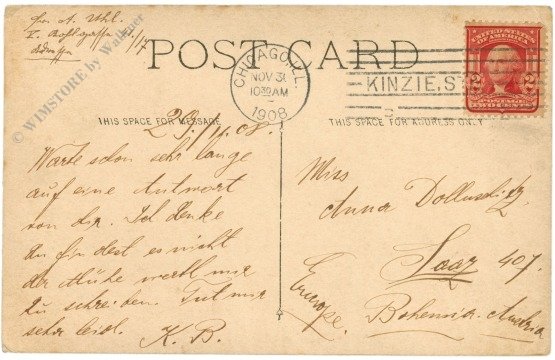 POST CARD
CHICAGO, ILL.
NOV 30
10 30 AM
1908
KINZIE, ST
UNITED STATES OF AMERICA
2 2
TWO CENTS
THIS SPACE FOR MESSAGE
THIS SPACE FOR ADDRESS ONLY
29./11.08.
Warte schon sehr lange
auf eine Antwort
von dir. Ich denke
du findest es nicht
der Mühe werth mir
zu schreiben. Tut mir
sehr leid. K. B.
Miss
Anna
Saaz 407.
Bohemia. Austria
Europe.
© WIMSTORE by Wallner